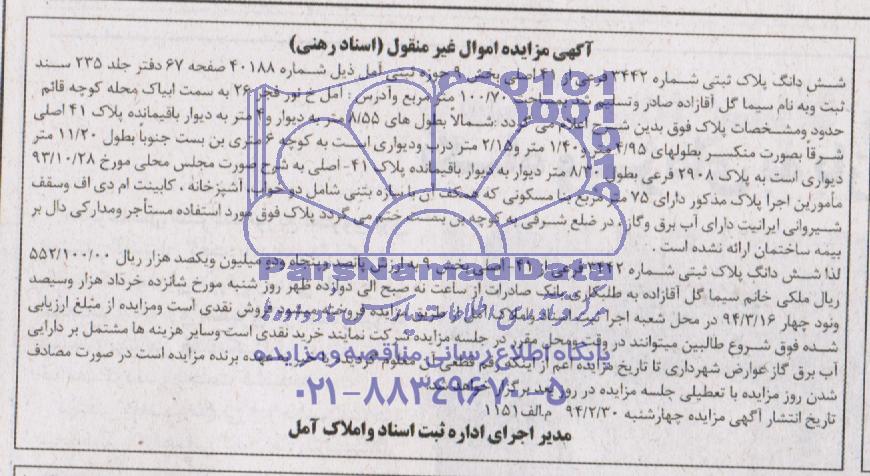 آگهی مزایده اموال غیر منقول (اسناد رهنی)
شش دانگ پلاک ثبتی شماره ۳۴۴۲ فرعی از ۴۱ اصلی بخش ۹ حوزه ثبتی آمل ذیل شماره ۴۰۱۸۸ صفحه ۶۷ دفتر جلد ۲۳۵ سند
ثبت وبه نام سیما گل آقازاده صادر وتسلیم شد به مساحت ۱۰۰/۷۰ متر مربع وآدرس: آمل خ نور فجر ۲۶ به سمت ابیاک محله کوچه قائم
حدود ومشخصات پلاک فوق بدین شرح اعلام می گردد: شمالاً بطول های ۸/۵۵ متر به دیوار و۴ متر به دیوار باقیمانده پلاک ۴۱ اصلی
شرقاً بصورت منکسر بطولهای ۴/۹۵ متر و۱/۴۰ متر و۲/۱۵ متر درب ودیواری است به کوچه ۶ متری بن بست جنوبا بطول ۱۱/۲۰ متر
دیواری است به پلاک ۲۹۰۸ فرعی بطول ۸/۲۰ متر دیوار به دیوار باقیمانده پلاک ۴۱- اصلی به شرح صورت مجلس محلی مورخ ۹۳/۱۰/۲۸
مأمورین اجرا پلاک مذکور دارای ۷۵ متر مربع بنا مسکونی که همکف آن با سازه بتنی شامل دو خواب، آشپزخانه، کابینت ام دی اف وسقف
شیروانی ایرانیت دارای آب برق وگاز، در ضلع شرقی به کوچه بن بست ختم می گردد پلاک فوق مورد استفاده مستأجر ومدارکی دال بر
بیمه ساختمان ارائه نشده است.
لذا شش دانگ پلاک ثبتی شماره ۳۴۴۲ فرعی از ۴۱- اصلی بخش ۹ به ارزش پانصد وپنجاه ودو میلیون ویکصد هزار ریال ۵۵۲/۱۰۰/۰۰
ریال ملکی خانم سیما گل آقازاده به طلبکاری بانک صادرات از ساعت نه صبح الی دوازده ظهر روز شنبه مورخ شانزده خرداد هزار وسیصد
ونود چهار ۹۴/۳/۱۶ در محل شعبه اجرا ثبت اسناد واملاک آمل از طریق مزایده فروخته میشود فروش نقدی است ومزایده از مبلغ ارزیابی
شده فوق شروع طالبین میتوانند در وقت ومحل مقرر در جلسه مزایده شرکت نمایند خرید نقدی است وسایر هزینه ها مشتمل بر دارایی
آب برق گاز عوارض شهرداری تا تاریخ مزایده اعم از اینکه رقم قطعی آن معلوم گردیده عهده برنده مزایده است در صورت مصادف
شدن روز مزایده با تعطیلی جلسه مزایده در روز بعد برگزار خواهد شد.
تاریخ انتشار آگهی مزایده چهارشنبه ۹۴/۲/۳۰ م.الف ۱۱۵۱
مدیر اجرای اداره ثبت اسناد واملاک آمل
ParsNamadData
پایگاه اطلاع رسانی مناقصه و مزایده
۰۲۱-۸۸۳۴۹۶۷۰-۵